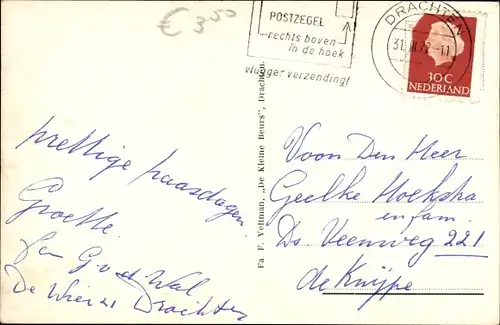 € 3.50
POSTZEGEL
rechts boven
in de hoek
vlugger verzending!
DRACHTEN
31
30 C
NEDERLAND
prettige paasdagen
Groette
fam G v d Wal
De Wier 21 Drachten
Fa. F. Veltman, „De Kleine Beurs”, Drachten.
Voor Den Heer
Geelke Hoekstra
en fam.
Ds Veenweg 221
de Knijpe